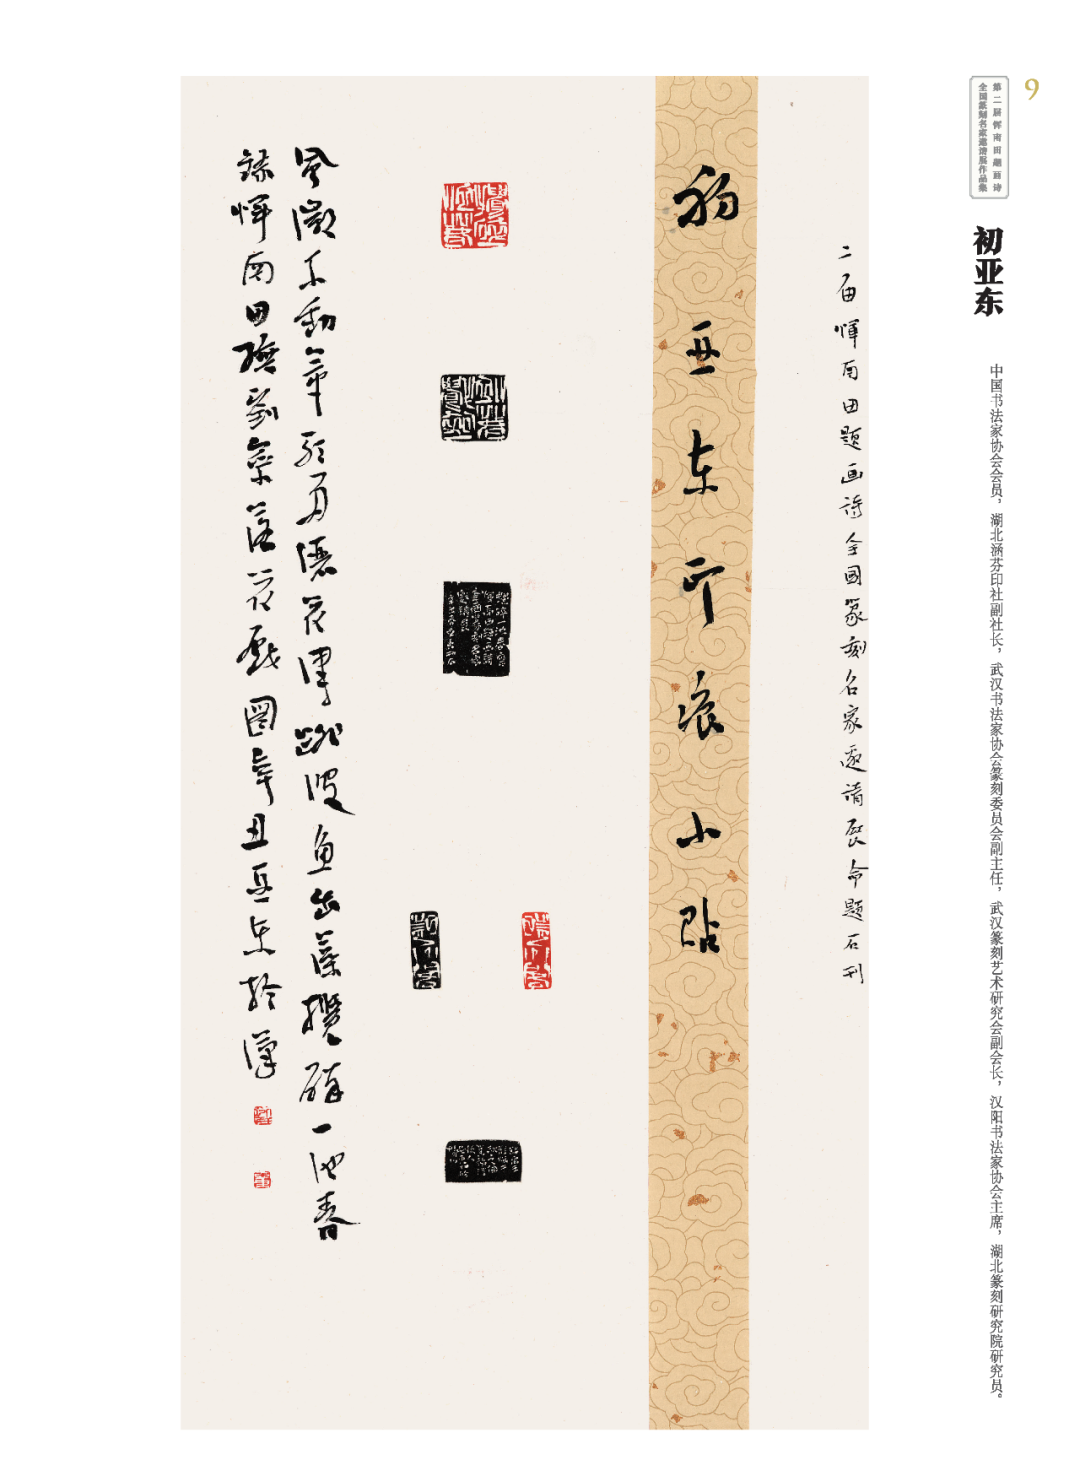 9
第二届恽南田题画诗
全国篆刻名家邀请展作品集
初亚东
中国书法家协会会员，湖北涵芬印社副社长，武汉书法家协会篆刻委员会副主任，武汉篆刻艺术研究会副会长，汉阳书法家协会主席，湖北篆刻研究院研究员。
二届恽南田题画诗全國篆刻名家邀请展命题石刊
初亚东印痕小贴
風微不動 花津跳波魚出藻攪碎一池春
錄恽南田橅劉寀落花戲圖辛丑亚东於漢